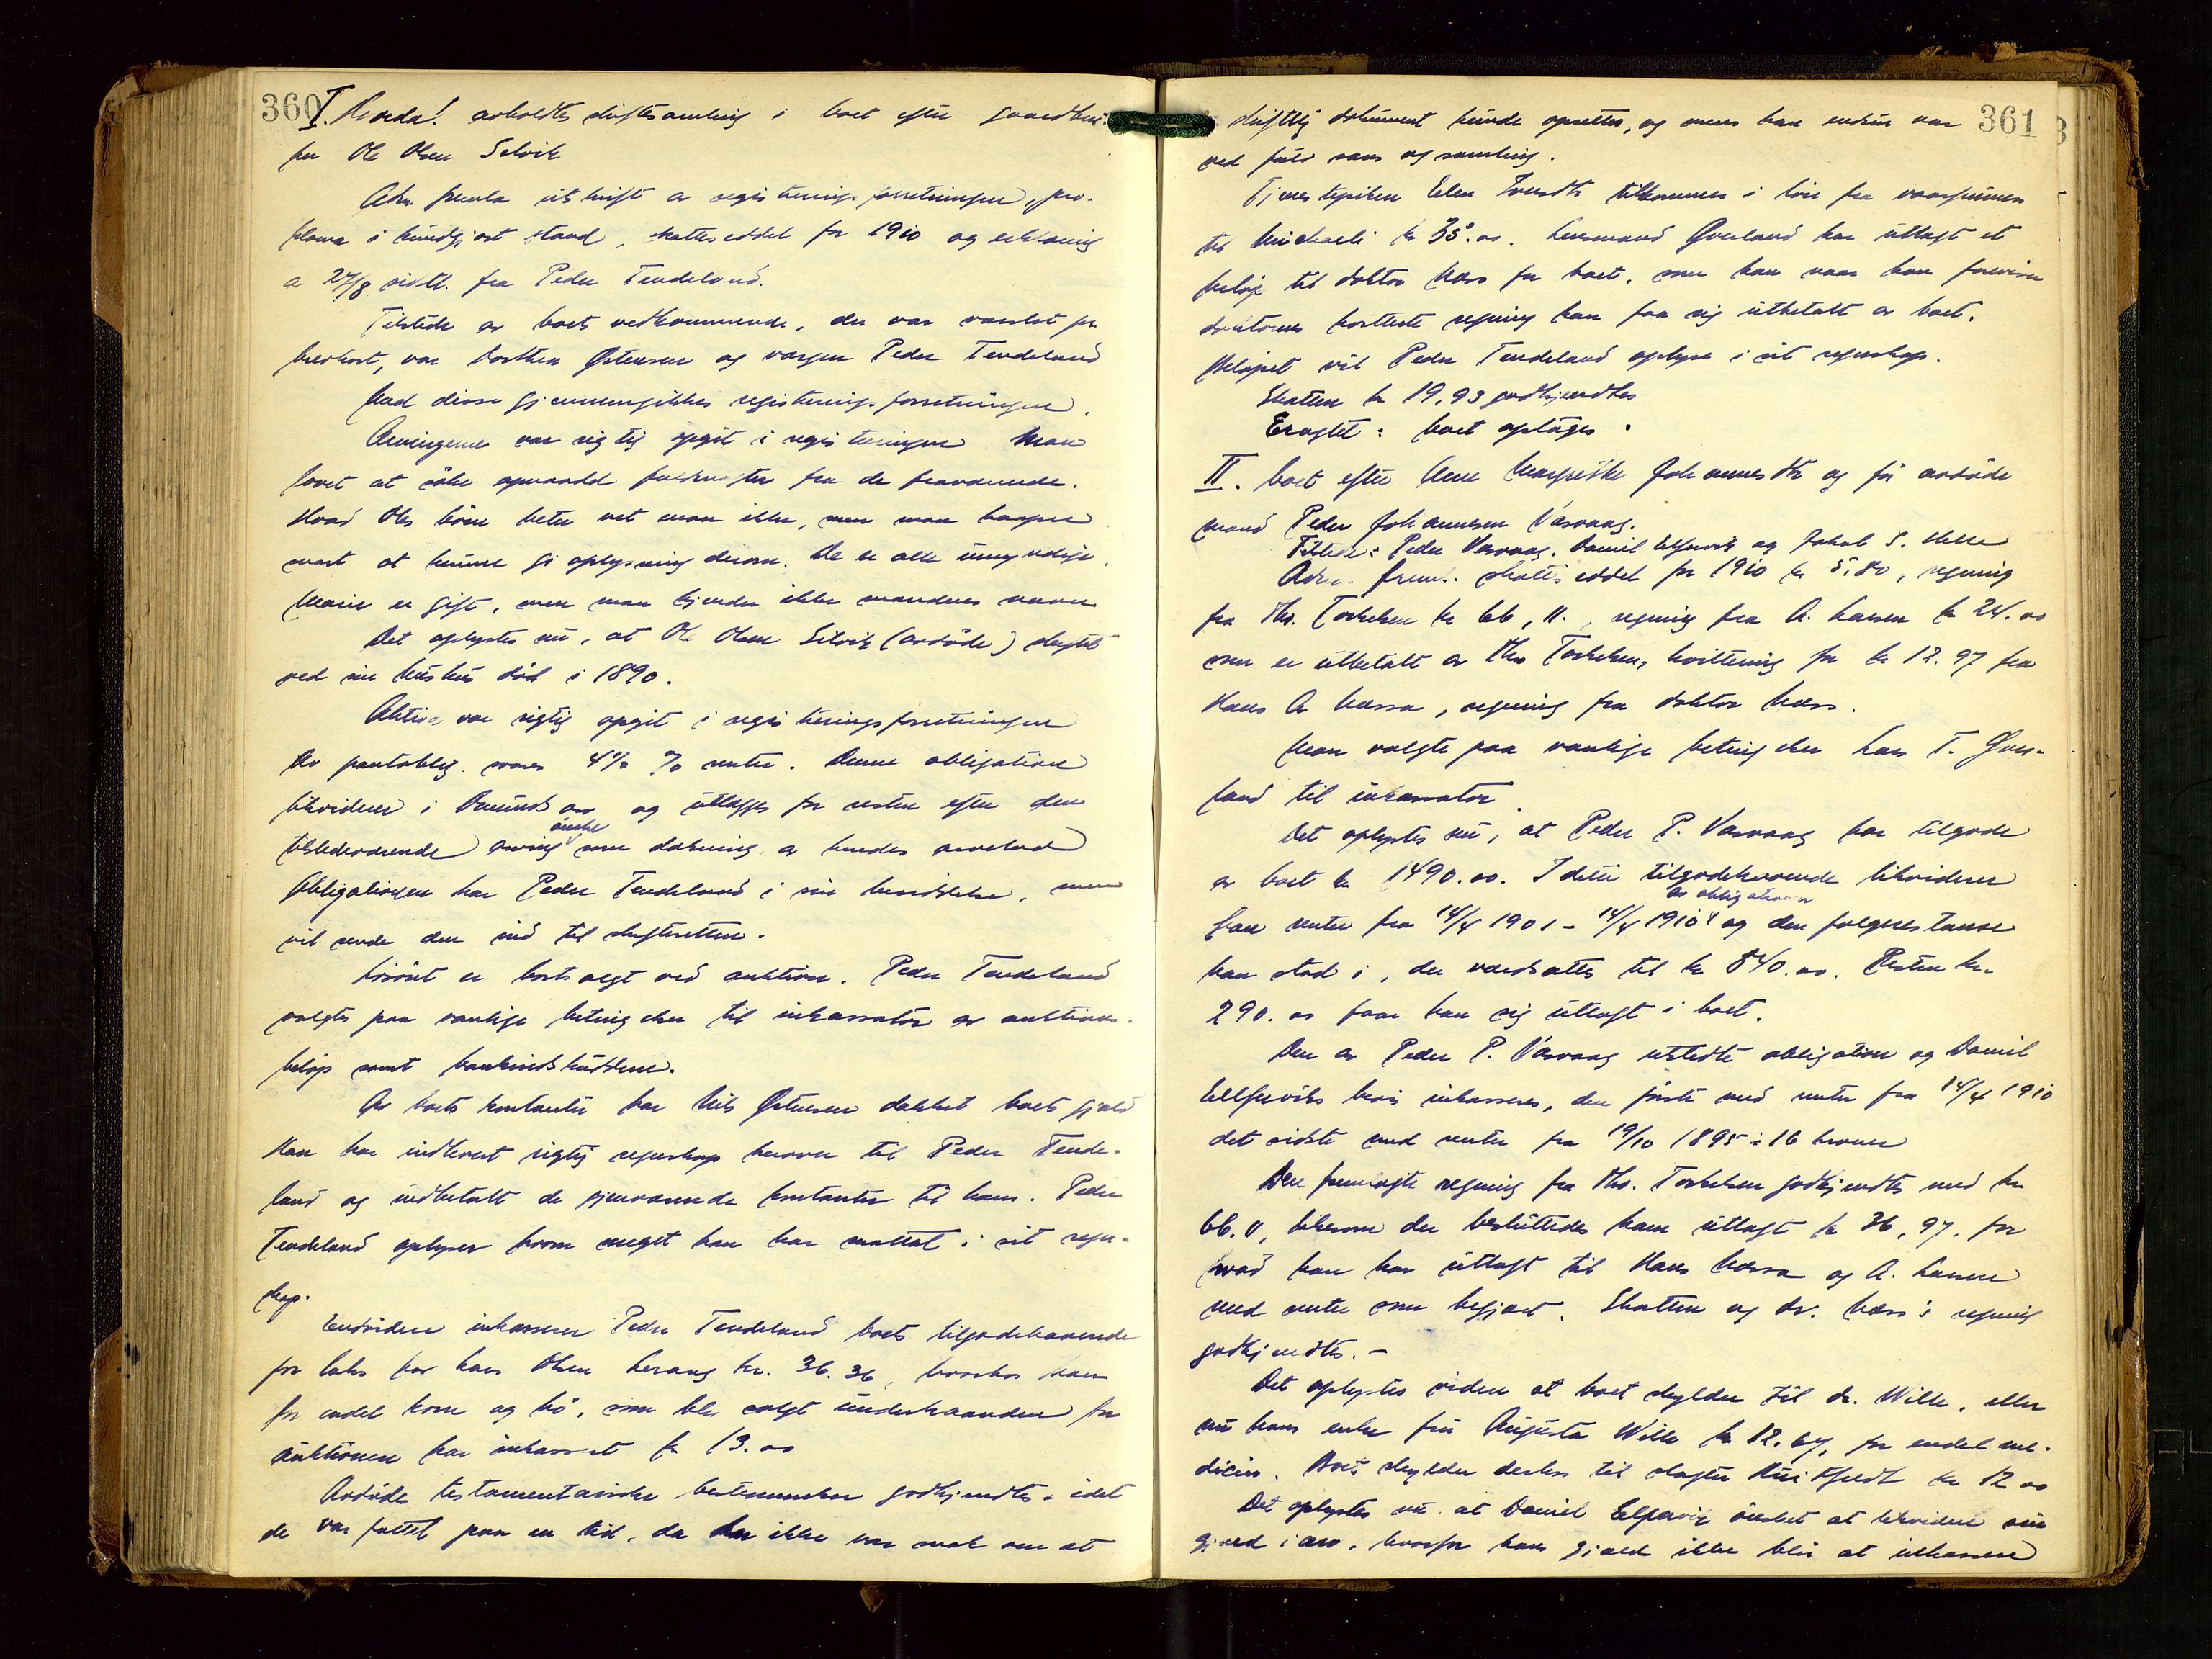 360
I. S. d. avholdtes skiftesamling i boet efter gaardbru-
ker Ole Olsen Selvik
Adm. fremla utskrift av registreringsforretningen, pro-
klama i kundgjort stand, skatteseddel for 1910 og erklæring
av 27/8 sidstl. fra Peder Tendeland.
Tilstede av boets vedkommende, der var varslet pr
brevkort, var Dorthea Østensen og vergen Peder Tendeland
Med disse gjennemgikkes registreringsforretningen.
Arvingerne var rigtig opgit i registreringen. Man
lovet at søke opnaadd fuldmagter fra de fraværende.
Hvad Oles børn heter vet man ikke, men man haaper
snart at kunne gi oplysning derom. De er alle umyndige.
Marie er gift, men man kjender ikke mandens navn
Det oplystes nu, at Ole Olsen Selvik (avdøde) skiftet
ved sin hustrus død i 1890.
Aktiva var rigtig opgit i registreringsforretningen
Av pantoblig. svares 4½ % rente. Denne obligation
likviderer i arv og utlægges for resten efter den
tilstedeværende arvings ønske som dækning av hendes arvelod
Obligationen har Peder Tendeland i sin besiddelse, men
vil sende den ind til skifteretten.
Løsøret er bortsolgt ved auktion. Peder Tendeland
valgtes paa vanlige betingelser til inkassator av auktions-
beløp samt bankindskuddene.
Av boets kontanter har Nils Østensen dækket boets gjæld
Han har indlevert rigtig regnskap herover til Peder Tende-
land og indbetalt de gjenværende kontanter til ham. Peder
Tendeland oplyser hvor meget han har mottat i sit regn-
skap.
Endvidere inkasserer Peder Tendeland boets tilgodehavende
for laks hos Lars Olsen kr. 36.36, hvorhos han
for endel korn og hø, som blev solgt underhaanden før
auktionen har inkassert kr 13.00
Avdødes testamentariske bestemmelser godkjendtes, idet
de var fattet paa en tid, da der ikke var mak om at
361
skriftlig dokument kunde oprettes, og mens han endnu var
ved fuld sans og samling.
Tjenestepiken Elen tilkommer i løn fra vaarsummer
til Michaeli kr 35.00. Lensmand Øverland har utlagt et
beløp til doktor Næss for boet, som han naar han foreviser
doktorens kvitterte regning kan faa sig utbetalt av boet.
Beløpet vil Peder Tendeland oplyse i sit regnskap.
Skatten kr 19,93 godkjendtes
Eragtet: boet optages.
II. boet efter Anne Margrethe Johannesdtr og før avdøde
mand Peder Johannesen Vasvaag.
Tilstede: Peder Vasvaag, Daniel Elfervik og Jakob S. Helle
Adm. freml. skatteseddel for 1910 kr 5,80, regning
fra Ths. Torkelsen kr 66,11., regning fra A. Larsen kr 24.00
som er utbetalt av Ths Torkelsen, kvittering for kr 12.97 fra
Hans A Næssa, regning fra doktor Næss.
Man valgte paa vanlige betingelser Lars T. Øver-
land til inkassator.
Det oplystes nu, at Peder P. Vasvaag har tilgode
av boet kr 1490.00. I dette tilgodehavende likviderer
han renter av obligationen fra 14/4 1901 - 14/4 1910 og den følgrestanse
han stod i, der værdsattes til kr 840.00. Resten kr.
290.00 faar han sig utlagt i boet.
Den av Peder P. Vasvaag utstedte obligation og Daniel
Elferviks bevis inkasseres, den første med renter fra 14/4 1910
det sidste med renter fra 19/10 1895 : 16 kroner
Den fremlagte regning fra Ths. Torkelsen godkjendtes med kr
66.11, likesom der besluttedes ham utlagt kr 36,97. for
hvad han har utlagt til Hans Næssa og A. Larsen
med renter som begjært. Skatten og dr. Næss's regning
godkjendtes. -
Det oplystes videre at boet skylder til dr. Wille, eller
nu hans enke fru Augusta Wille kr 12.64, for endel me-
dicin. Boet skylder desuten til kr 12.00
Det oplystes nu at Daniel Elfervik ønsket at likvidere sin
gjæld i arv, hvorfor hans gjæld ikke blir at inkassere